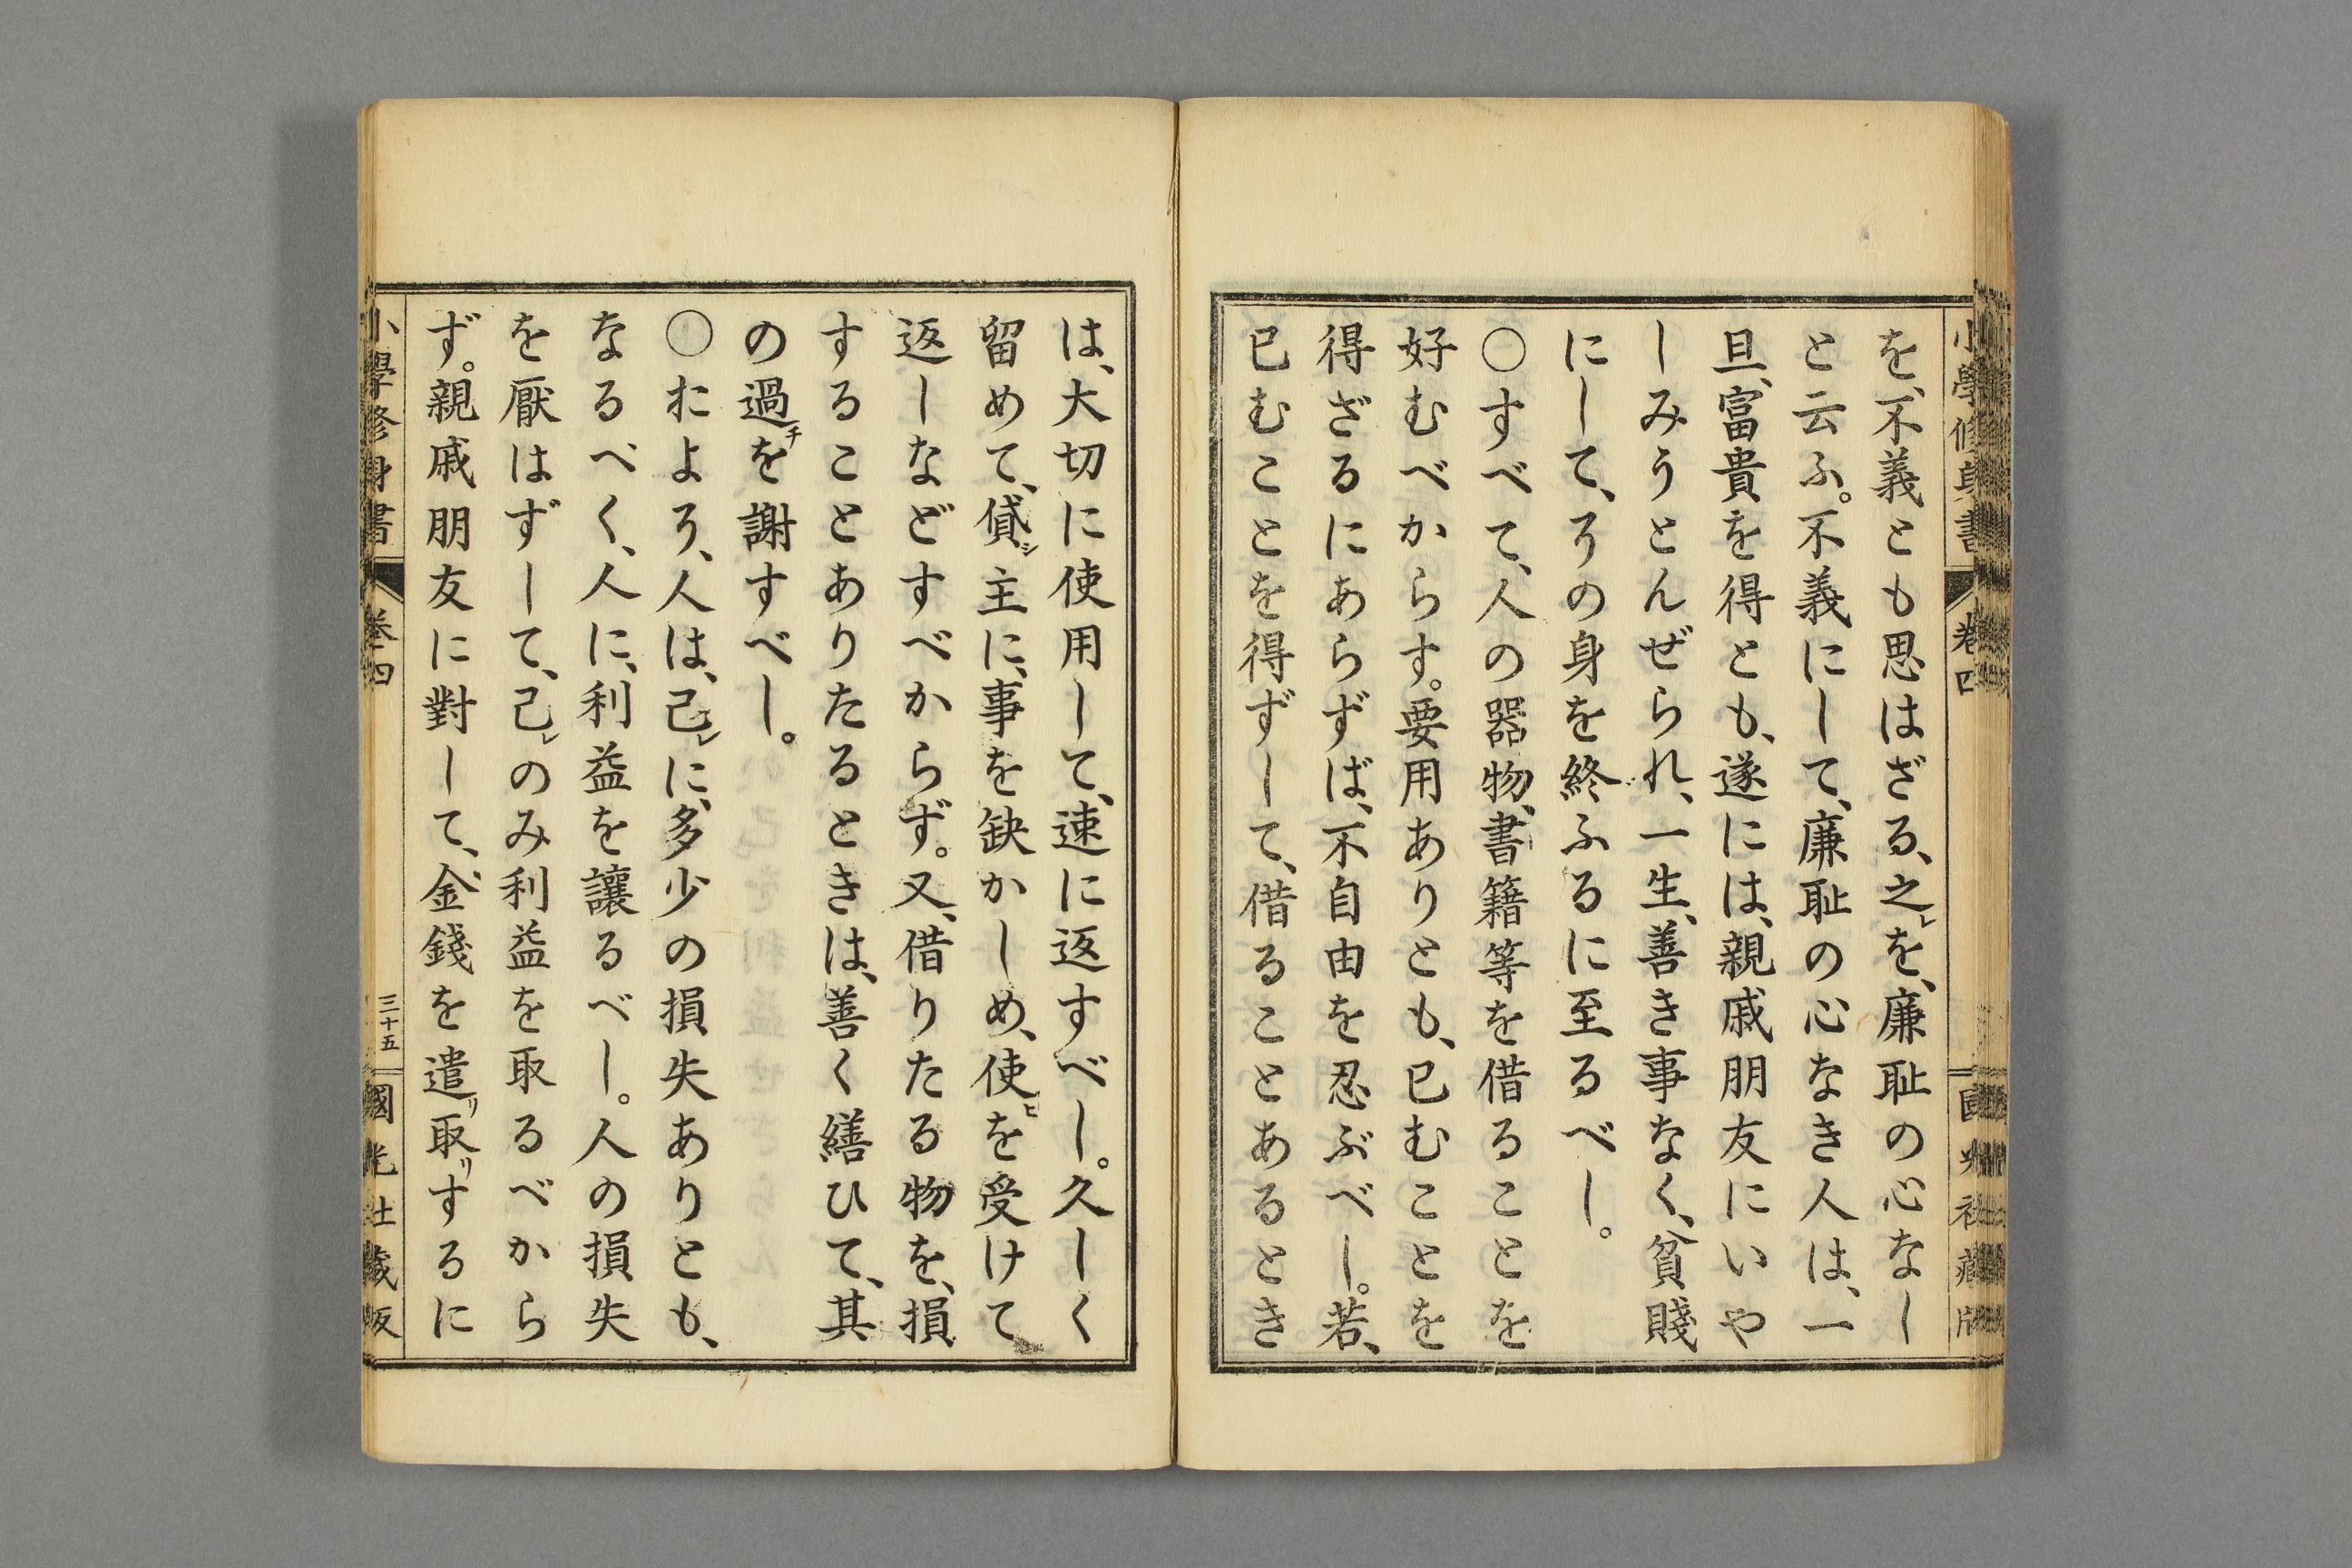 小學修身書 卷四 國光社藏版
を、不義とも思はざる、之レを、廉耻の心なし
と云ふ。不義にして、廉耻の心なき人は、一
旦、富貴を得とも、遂には、親戚朋友にいや
しみうとんぜられ、一生、善き事なく、貧賤
にして、その身を終ふるに至るべし。
〇すべて、人の器物、書籍等を借ることを
好むべからす。要用ありとも、已むことを
得ざるにあらずば、不自由を忍ぶべし。若、
已むことを得ずして、借ることあるとき
は、大切に使用して、速に返すべし。久しく
留めて、貸シ主に、事を缺かしめ、使ヒを受けて
返しなどすべからず。又、借りたる物を、損
することありたるときは、善く繕ひて、其
の過チを謝すべし。
〇およそ、人は、己レに、多少の損失ありとも、
なるべく、人に、利益を讓るべし。人の損失
を厭はずして、己レのみ利益を取るべから
ず。親戚朋友に對して、金錢を遣リ取リするに
小學修身書 卷四 三十五 國光社藏版